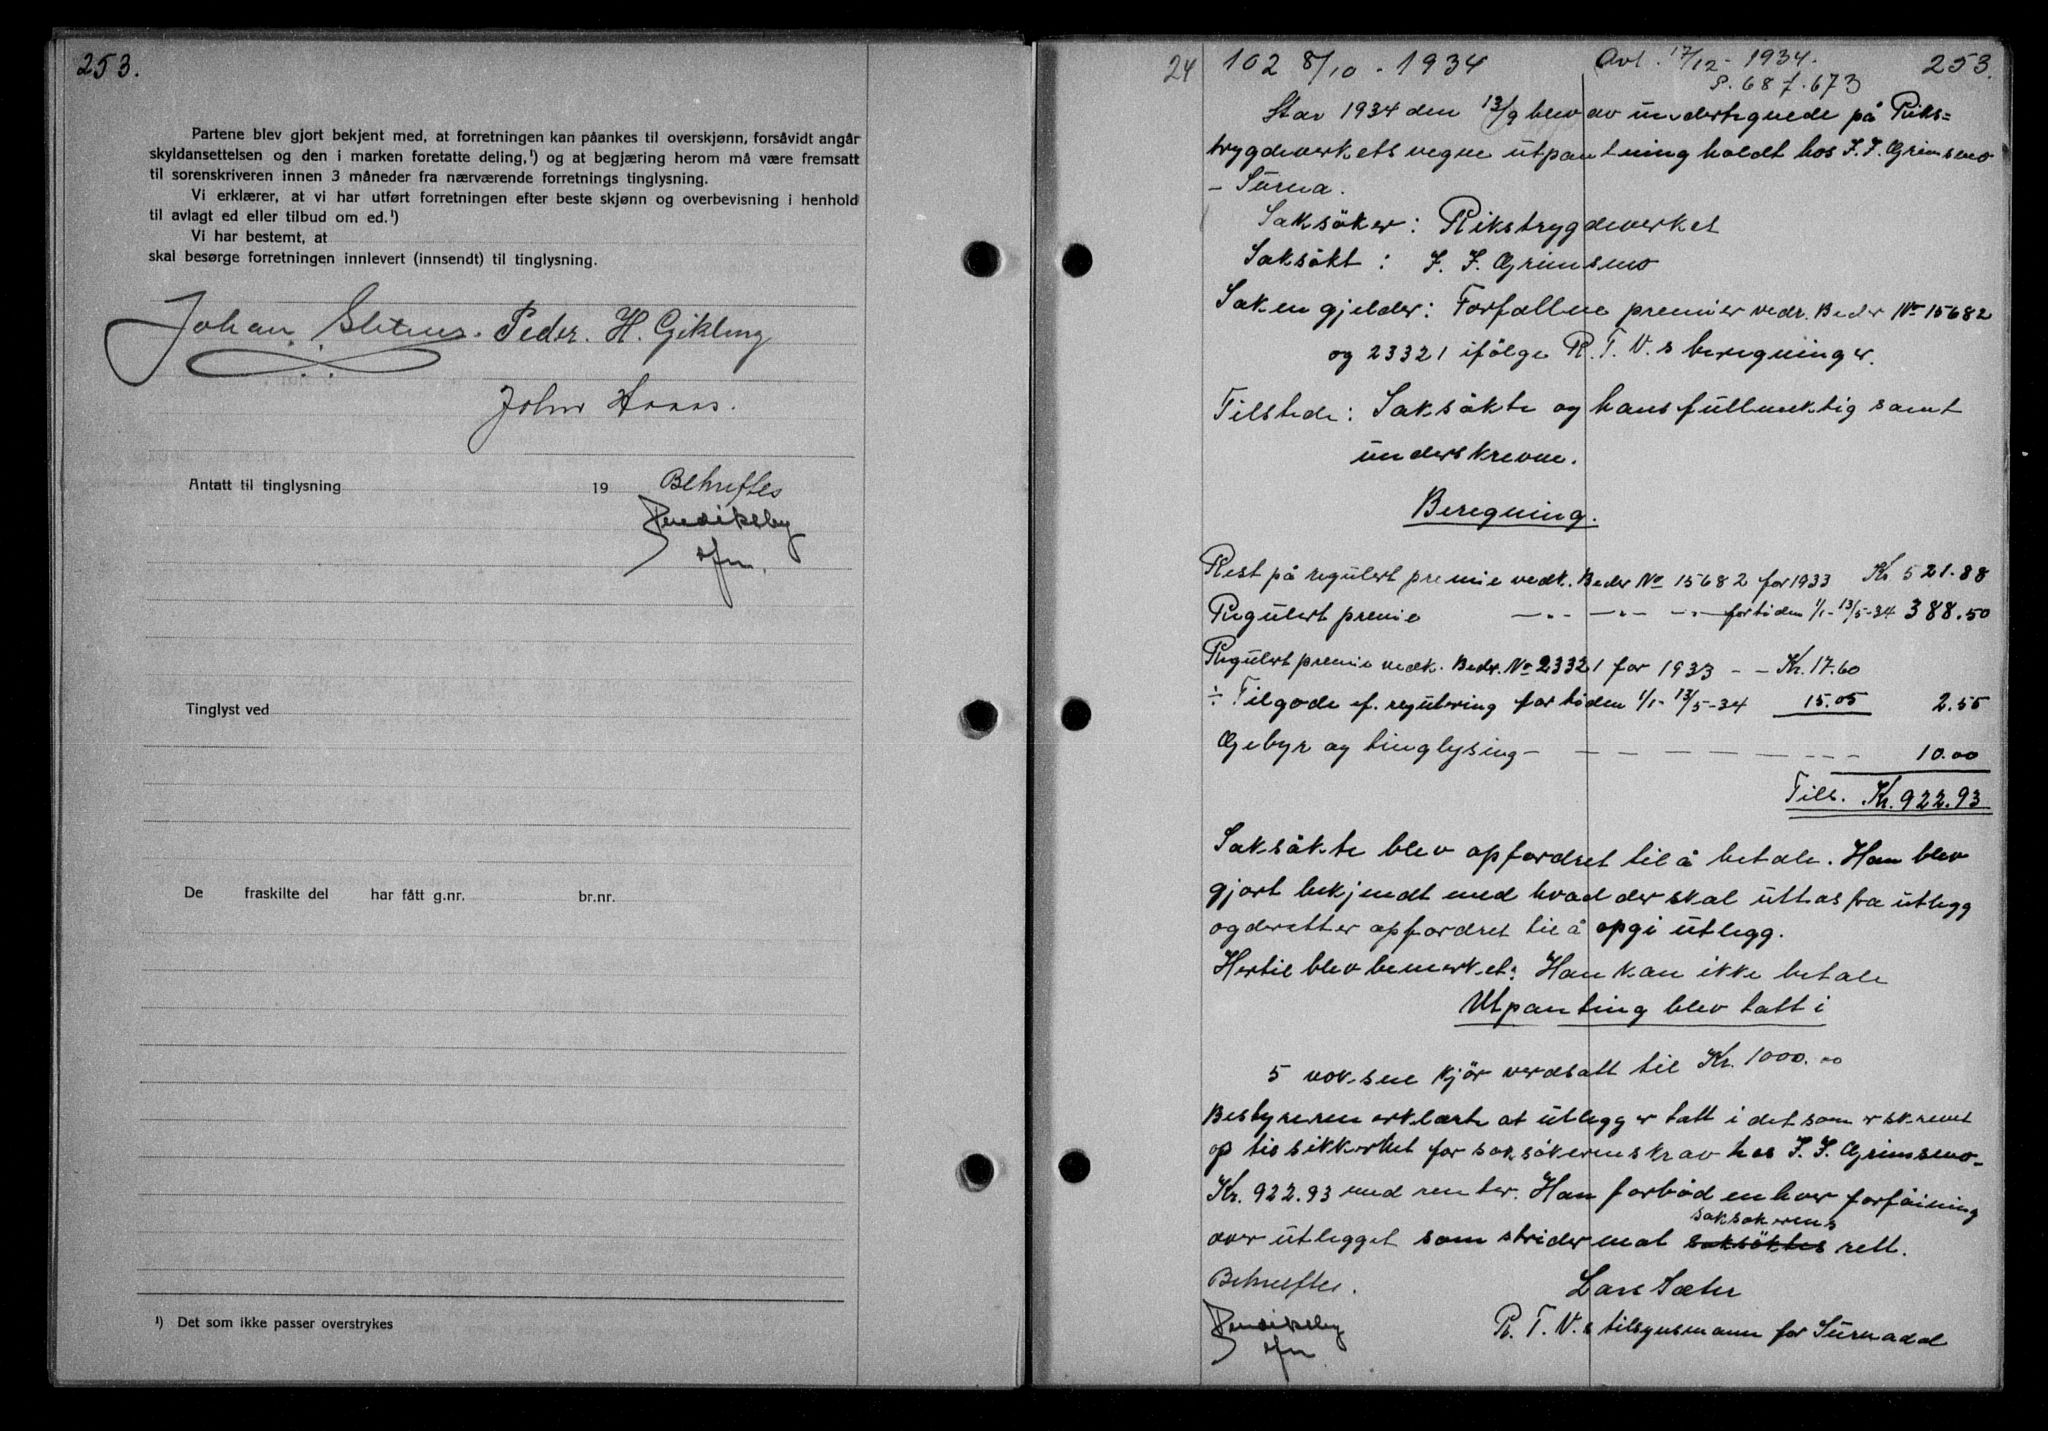 253.
Partene blev gjort bekjent med, at forretningen kan påankes til overskjønn, forsåvidt angår
skyldansettelsen og den i marken foretatte deling,¹) og at begjæring herom må være fremsatt
til sorenskriveren innen 3 måneder fra nærværende forretnings tinglysning.
Vi erklærer, at vi har utført forretningen efter beste skjønn og overbevisning i henhold
til avlagt ed eller tilbud om ed.¹)
Vi har bestemt, at
skal besørge forretningen innlevert (innsendt) til tinglysning.
Johan Peder. H. Gikling
John
Antatt til tinglysning 19 Bekreftes
Tinglyst ved
De fraskilte del har fått g.nr. br.nr.
¹) Det som ikke passer overstrykes
24 102 8/10 - 1934 Avl. 17/12 - 1934. 253.
P. 687.673
År 1934 den 13/9 blev av undertegnede på Riks=
trygdeverkets vegne utpantning holdt hos J. J. Grimsmo
- Surna.
Saksöker: Rikstrygdeverket
Saksökt : J. J. Grimsmo
Saken gjelder: Forfallne premier vedr. Bedr No 15682
og 23321 ifölge R. T. V. s beregninger.
Tilstede: Saksökte og hans fullmektig samt
underskrevne.
Beregning.
Rest på regulert premie vedk. Bedr No 15682 for 1933 Kr. 521.88
Regulert premie -"- -"- -"- for tiden 1/1 - 13/5-34 388.50
Regulert premie vedk. Bedr. No 23321 for 1933 - - Kr. 17.60
÷ Tilgode ef. regulering for tiden 1/1 - 13/5-34 15.05 2.55
Gebyr og tinglysing - - - - - - - - 10.00
Tils. Kr. 922.93
Saksökte blev opfordret til å betale. Han blev
gjort bekjendt med hvad der skal uttas fra utlegg
og deretter opfordret til å opgi utlegg.
Hertil blev bemerket: Han kan ikke betale
Utpanting blev tatt i
5 voksne kjör verdsatt til Kr. 1000.00
Bestyreren erklærte at utlegg er tatt i det som er skrevet
op til sikkerhet for saksökerens krav hos J. J. Grimsmo-
Kr. 922.93 med renter. Han forböd enhver forföining
saksökerens
over utlegget som strider mot saksöktes rett.
Bekreftes. Lars Sæter
R. T. V. s tilsynsmann for Surnadal